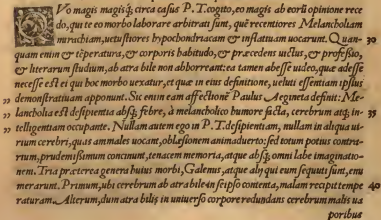 QVo magis magisq́; circa casus P. T. cogito, eo magis ab eorū opinione rece
do, qui te eo morbo laborare arbitrati sunt, quē recentiores Melancholiam
mirachiam, uetustiores hypochondriacam & inflatiuam uocarunt. Quan-
quam enim & tēperatura, & corporis habitudo, & præcedens uictus, & professio, 30
& literarum studium, ab atra bile non abhorreant: ea tamen abesse uideo, quæ adesse
necesse est ei qui hoc morbo uexatur, et quæ in eius definitione, ueluti essentiam ipsius
„ demonstratiuam apponunt. Sic enim eam affectionē Paulus Aegineta definit: Me-
„ lancholia est desipientia absq́; febre, à melancholico humore facta, cerebrum atq́; in- 35
„ telligentiam occupante. Nullam autem ego in P. T. desipientiam, nullam in aliqua ui-
rium cerebri, quas animales uocant, oblæsionem animaduerto: sed totum potius contra-
rium, prudentissimum concinunt, tenacem memoria, atque absq́; omni labe imaginatio-
nem. Tria præterea genera huius morbi, Galenus, atque alij qui eum sequuti sunt, enu
merarunt. Primum, ubi cerebrum ab atra bile in seipso contenta, malam recipit tempe 40
raturam. Alterum, dum atra bilis in uniuerso corpore redundans cerebrum malis ua
poribus